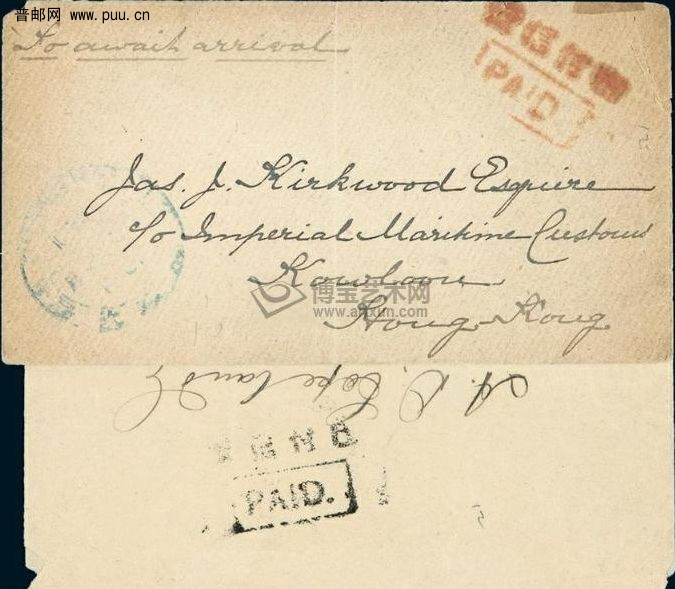 普邮网 www.puu.cn
To await arrival
信付
PAID
Jas. J. Kirkwood Esquire
c/o Imperial Maritime Customs
Kowloon
Hong-Kong
博宝艺术网
www.artxun.com
信付已
PAID.